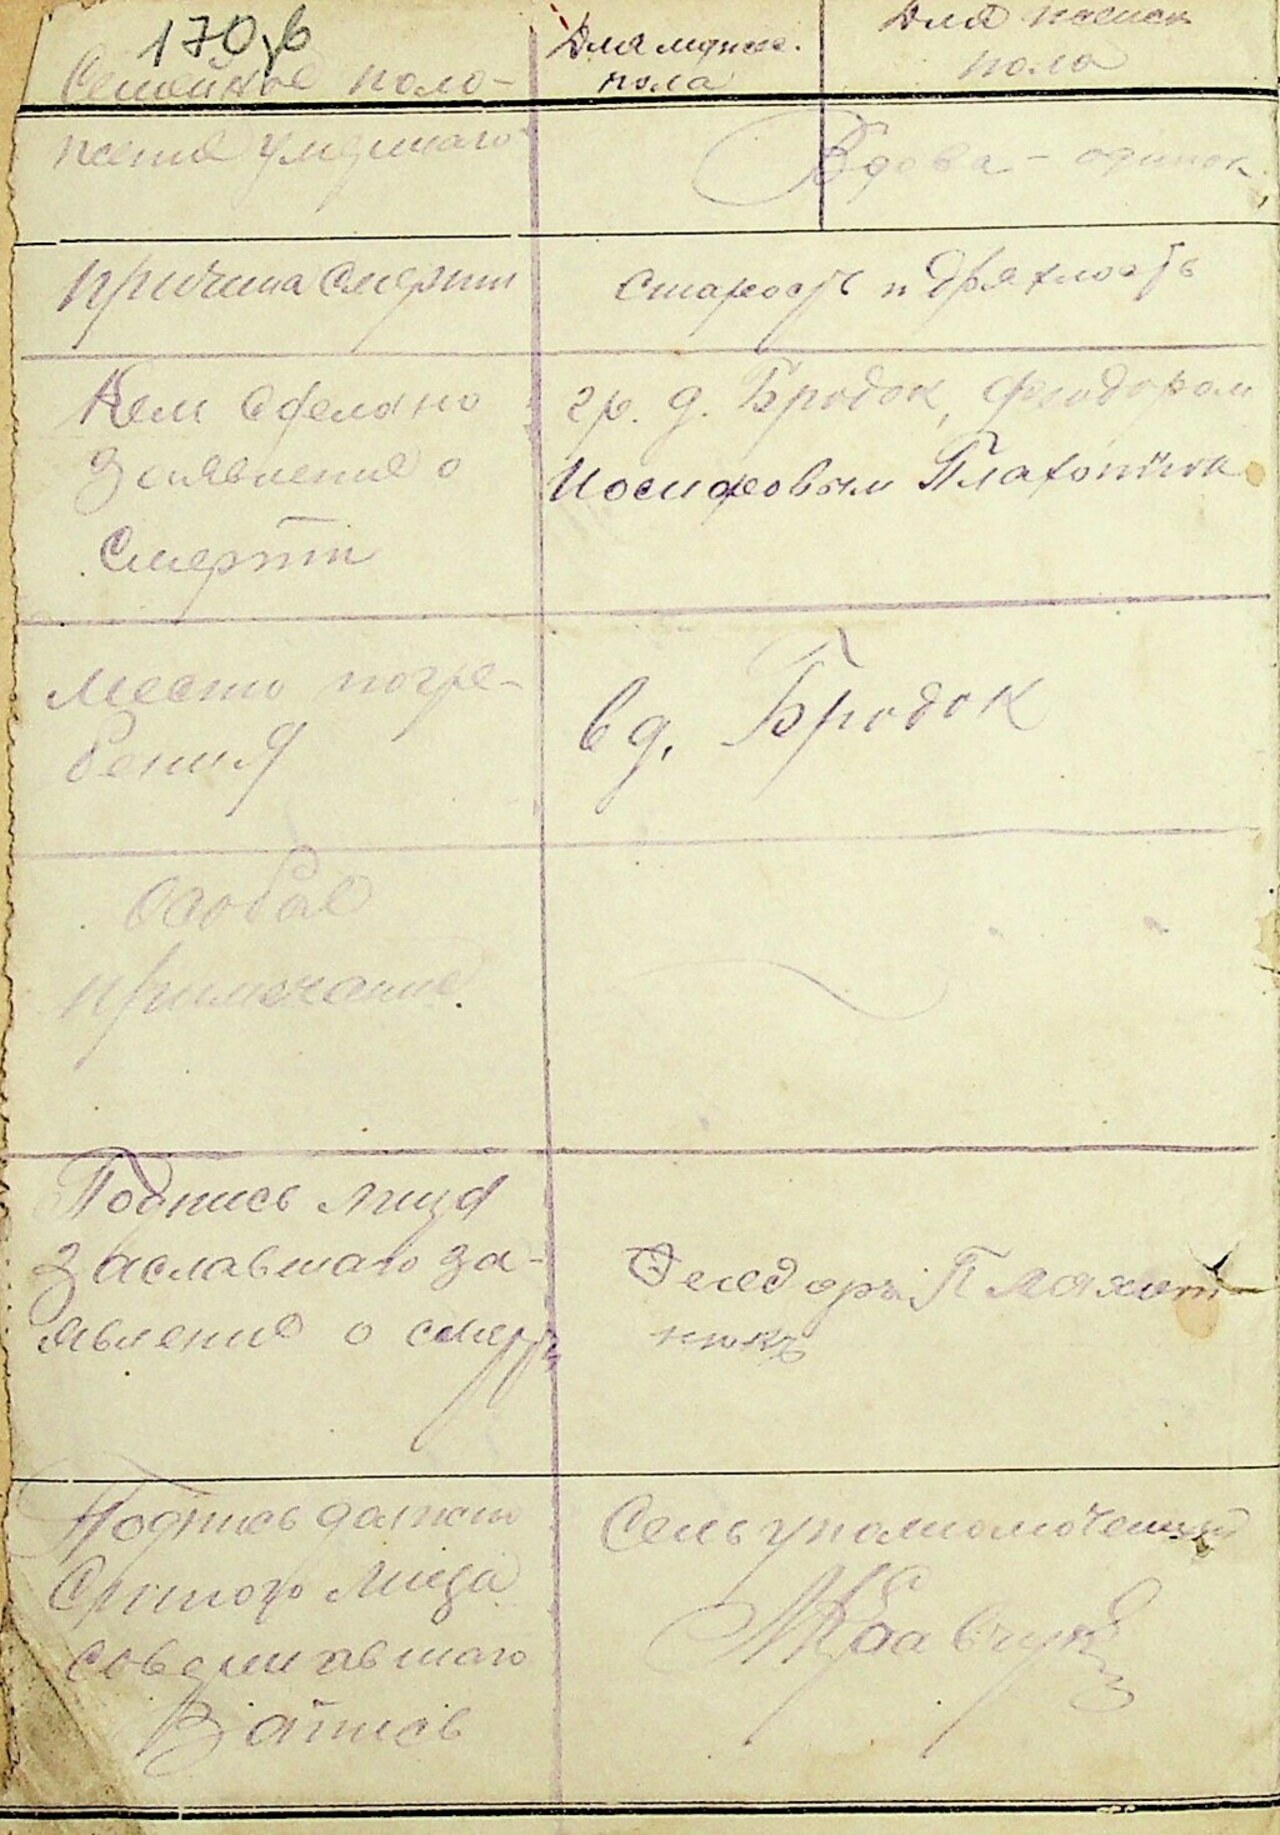 170 об
Семейное поло-
Для мужск.
пола
Для женск
пола
жения умершаго
Вдова - одинок.
Причина смерти
Старость и дряхлость
Кем сделано
заявление о
смерти
гр. д. Бродок, Феодором
Иосифовым Плахотнюк
Место погре-
бения
в д. Бродок
Особое
примечание.
Подпись лица
заславшаго за-
явление о смерти
Феедоръ Плахот
нюкъ
Подпись должно
стного лица
совершавшаго
Запись
Сельуполномоченный
МКравчук